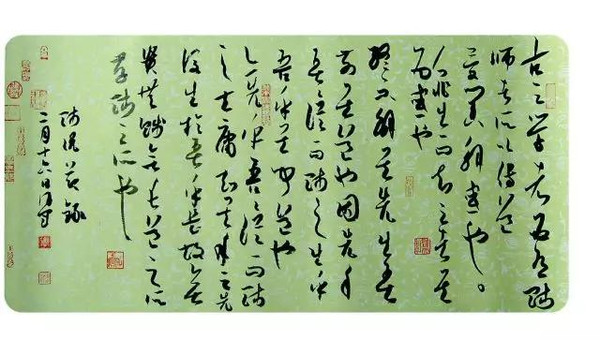 古之学者必有师
师者所以传道
受业解惑也。
人非生而知之者
惑也
终不解矣生乎吾
前其闻道也固先乎
吾从而师之生乎
吾后其闻道也
亦先乎吾吾从而师
之夫庸知其年之先
后生于吾乎是故无
贵无贱无长道之所
存师之所也
师说节录
二月十六日